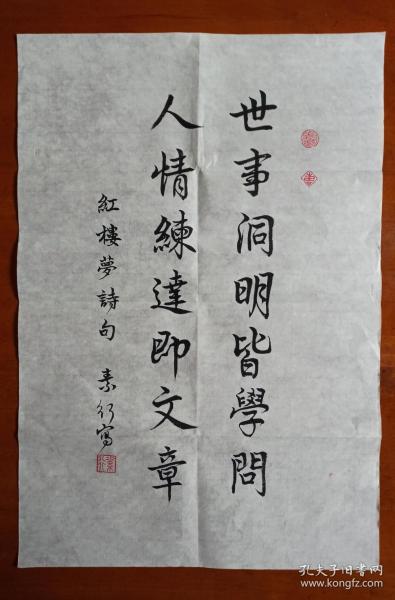 世事洞明皆學問
人情練達即文章
紅樓夢詩句 素行寫
孔夫子旧书网
www.kongfz.com